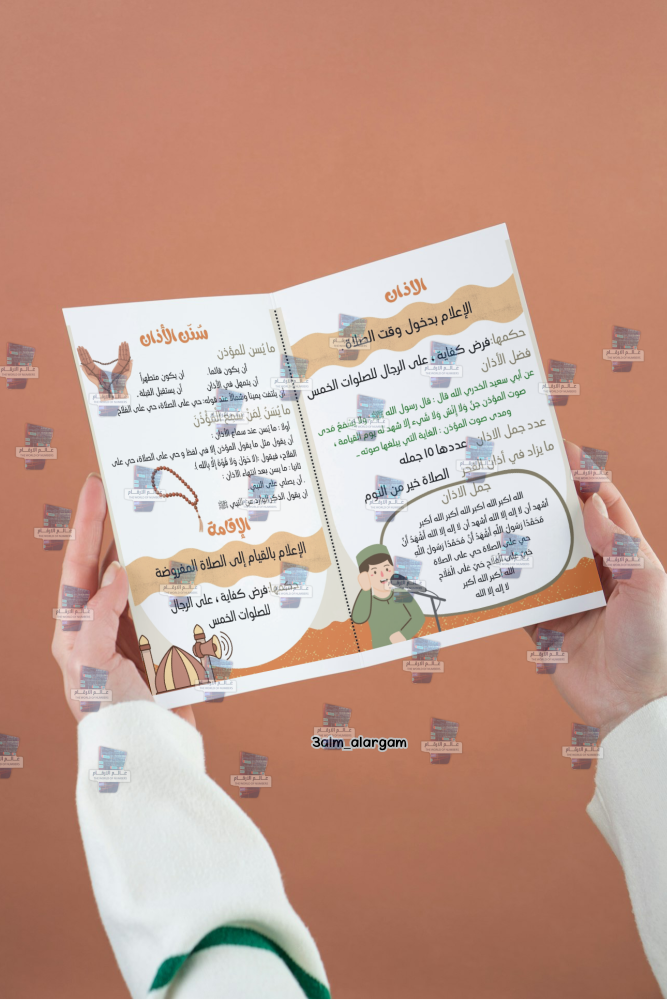 الأذان
الإعلام بدخول وقت الصلاة
حكمها: فرض كفاية ، على الرجال للصلوات الخمس
فضل الأذان
عن أبي سعيد الخدري قال : قال رسول الله ﷺ ولا يسمع مدى
صوت المؤذن جنّ ولا إنس ولا شيء إلا شهد له يوم القيامة ،
ومدى صوت المؤذن : الغاية التي يبلغها صوته .
عدد جمل الأذان عددها ١٥ جمله
ما يزاد في أذان الفجر الصلاة خير من النوم
جمل الأذان
الله اكبر الله اكبر الله أكبر الله أكبر
أشهد أن لا إله إلا الله اشهد أن لا إله إلا الله أشهد أن
محمدًا رسول الله أشهد أن محمدًا رسول الله
حي على الصلاة حي على الصلاة
حي على الفلاح حي على الفلاح
الله اكبر الله أكبر
لا إله إلا الله
سُنَن الأذان
ما يُسن للمؤذن
أن يكون قائما.
أن يكون متطهراً
أن يتمهل في الأذان
أن يستقبل القبلة.
أن يلتفت يمينا وشمالاً عند قوله: حي على الصلاة، حي على الفلاح
ما يُسَنّ لمن سمع المؤذن
أولا : ما يسن عند سماع الأذان :
أن يقول مثل ما يقول المؤذن إلا في لفظ و حي على الصلاة، حي على
الفلاح، فيقول: (لا حَوْلَ وَلا قُوّة إِلّا بِالله ).
ثانيا: ما يسن بعد انتهاء الأذان :
. أن يصلي على النبي
أن يقول الذكر الوارد عن النبي ﷺ
الإقامة
الإعلام بالقيام إلى الصلاة المفروضة
حكمها: فرض كفاية ، على الرجال
للصلوات الخمس
3alm_alargam
عالم الارقام